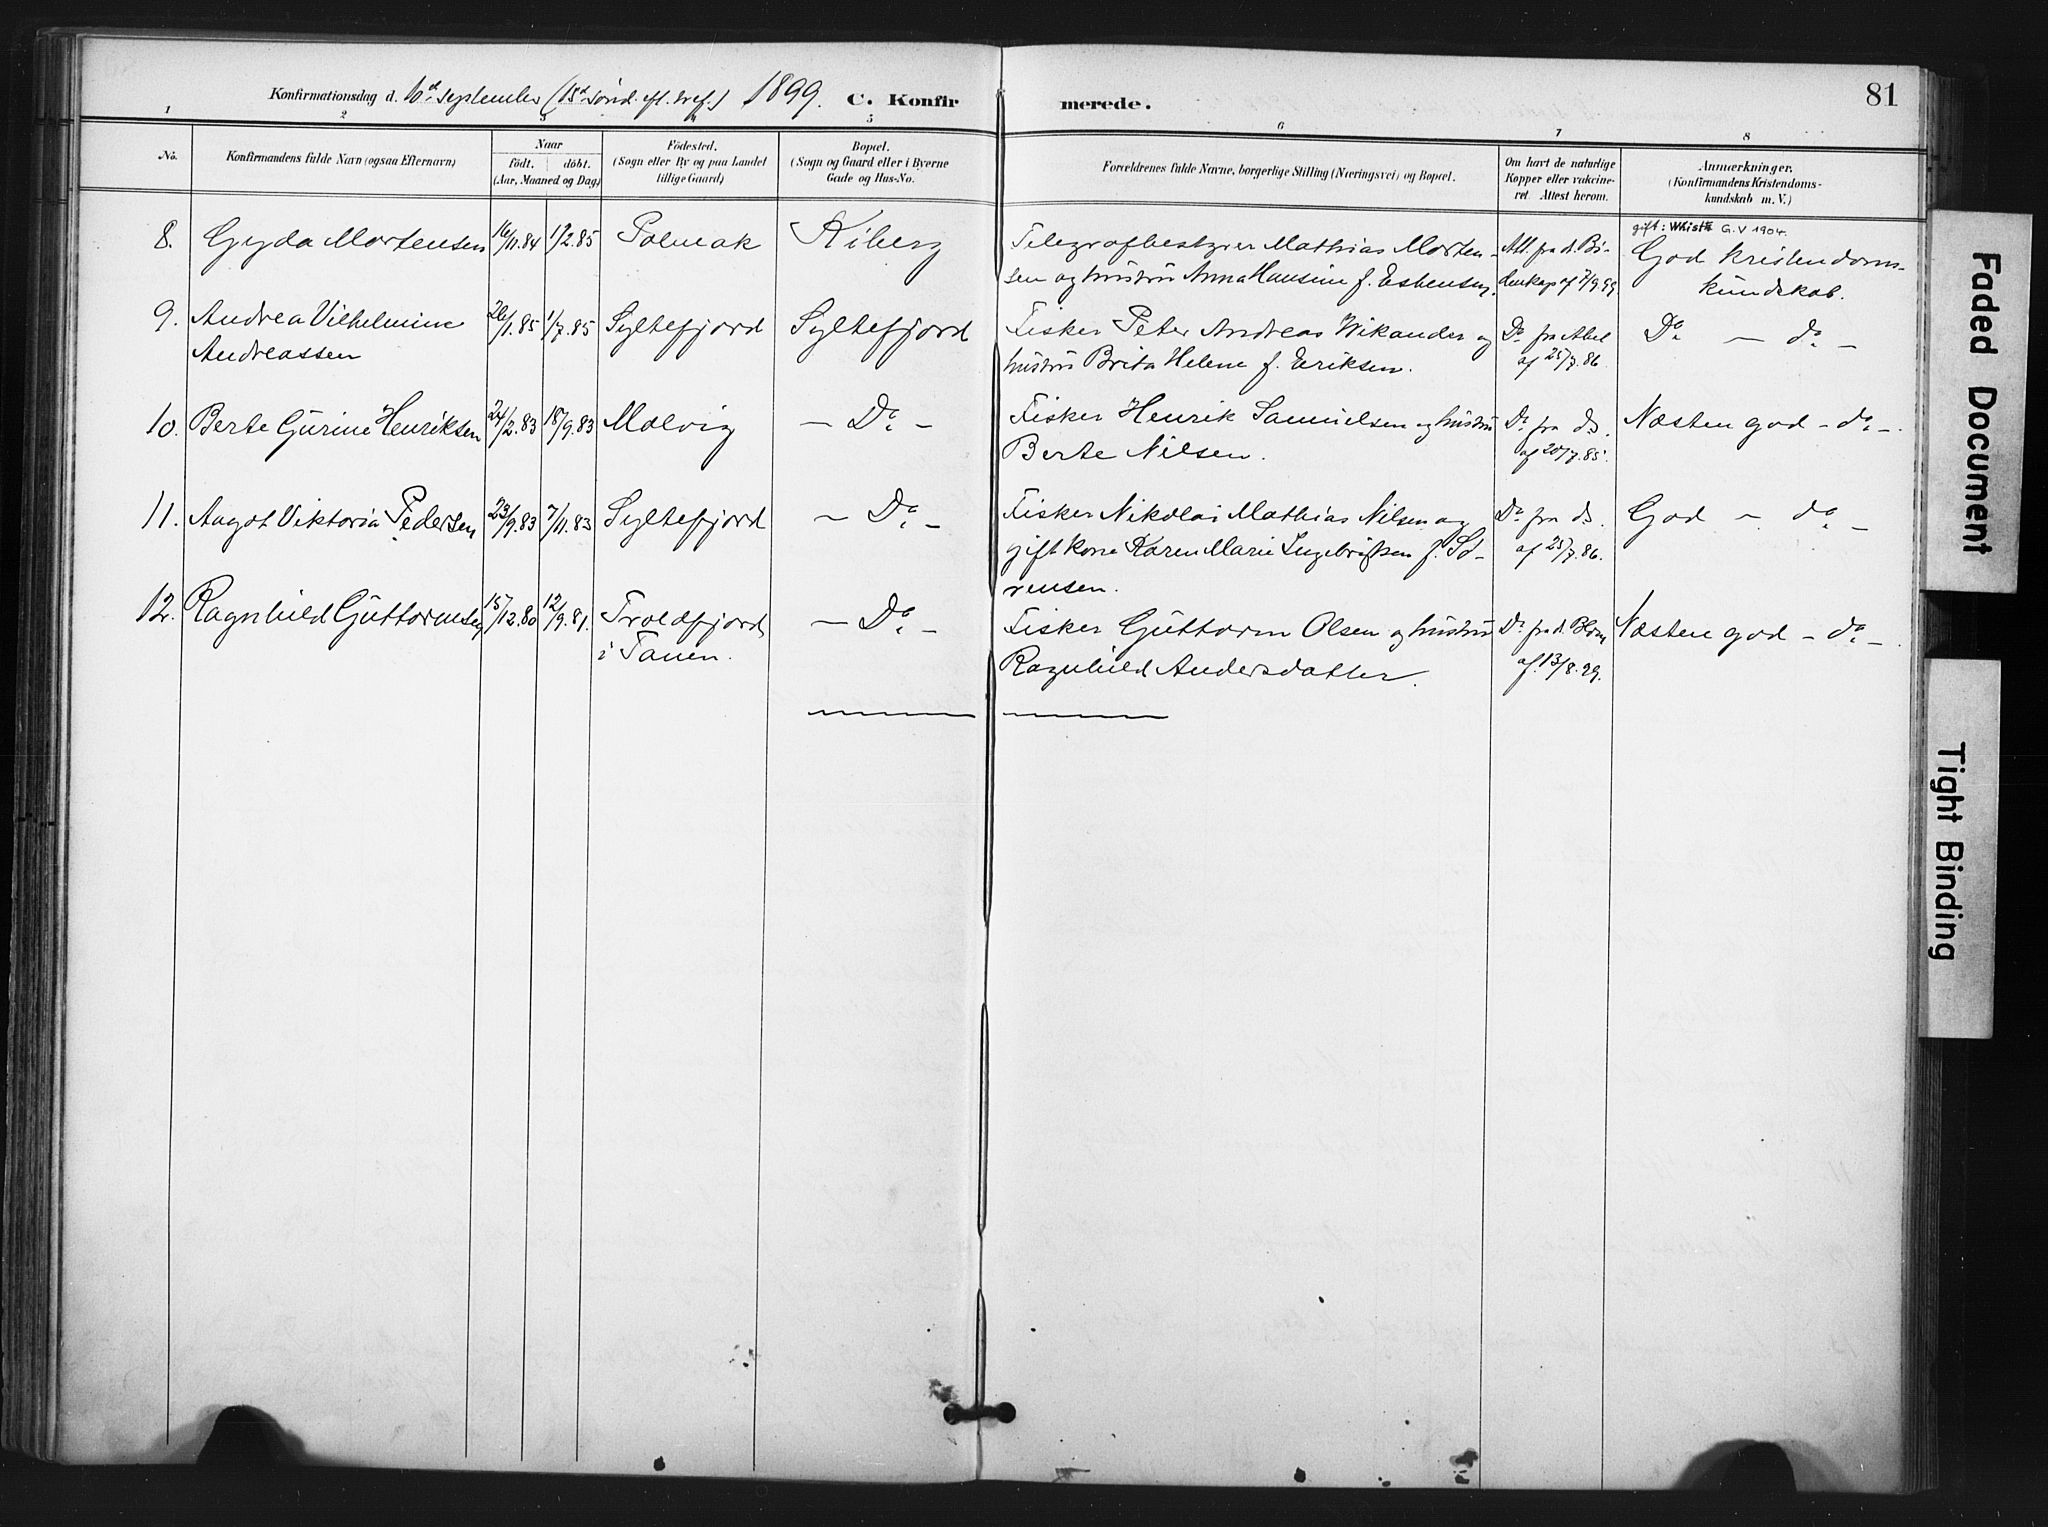 Konfirmationsdag d. 10de september (15de sönd. eft. tref.) 1899. C. Konfir merede. 81
1 2 3 4 5 6 7 8
No. Konfirmandens fulde Navn (ogsaa Efternavn) Naar födt. döbt. (Aar, Maaned og Dag) Födested. (Sogn eller By og paa Landet tillige Gaard) Bopæl. (Sogn og Gaard eller i Byerne Gade og Hus-No. Forældrenes fulde Navne, borgerlige Stilling (Næringsvei) og Bopæl. Om havt de naturlige Kopper eller vakcineret. Attest herom. Anmærkninger. (Konfirmandens Kristendomskundskab m. V.)
gift: G.V 1904.
8. Gyda Mortensen 16/11.84 1/2.85 Polmak Kiberg Telegrafbestyrer Mathias Morten- Att. fra d. Bi- God kristendoms-
sen og hustru Anna Hansine f. Esbensen. denkap af 7/9.99. kundskab.
9. Andrea Vilhelmine 26/1.85 1/7.85 Syltefjord Syltefjord Fisker Peter Andreas Wikander og Do fra Abel Do – do –
Andreassen hustru Brita Helene f. Eriksen. af 25/7.86.
10. Berte Gurine Henriksen 24/2.83 18/9.83 Molvig – Do – Fisker Henrik Samuelsen og hustru Do fra ds. Næsten god – do –.
Berte Nilsen. af 20/7.85.
11. Aagot Viktoria Pedersen 23/9.83 7/11.83 Syltefjord – Do – Fisker Nikolai Mathias Nilsen og Do fra ds. God – do –
gift kone Karen Marie Ingebrigtsen f. Sö- af 25/7.86.
rensen.
12. Ragnhild Guttormsen 15/12.80 12/9.81. Troldfjord – Do – Fisker Guttorm Olsen og hustru Do fra d. Blom Næsten god – do –.
i Tanen. Ragnhild Andersdatter. af 13/8.99.
Faded Document
Tight Binding